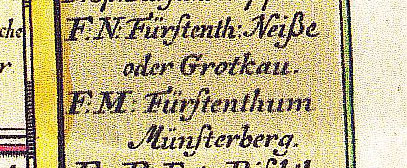 sche
F. N. Fürſtenth: Neiße
oder Grotkau.
F. M. Fürſtenthum
Münſterberg.